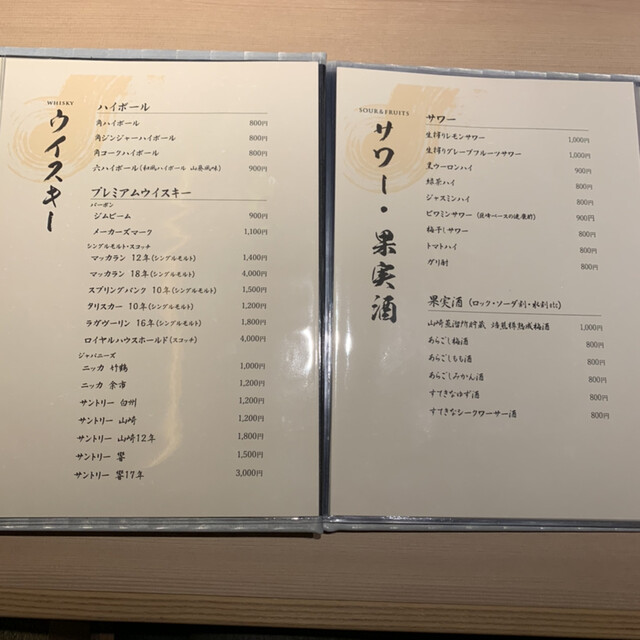 WHISKY
ウイスキー
ハイボール
角ハイボール 800円
角ジンジャーハイボール 800円
角コークハイボール 800円
六ハイボール(和風ハイボール 山椒風味) 900円
プレミアムウイスキー
バーボン
ジムビーム 900円
メーカーズマーク 1,100円
シングルモルト・スコッチ
マッカラン 12年(シングルモルト) 1,400円
マッカラン 18年(シングルモルト) 4,000円
スプリングバンク 10年(シングルモルト) 1,500円
タリスカー 10年(シングルモルト) 1,200円
ラグヴーリン 16年(シングルモルト) 1,800円
ロイヤルハウスホールド(スコッチ) 4,000円
ジャパニーズ
ニッカ 竹鶴 1,000円
ニッカ 余市 1,200円
サントリー 白州 1,200円
サントリー 山崎 1,200円
サントリー 山崎12年 1,800円
サントリー 響 1,500円
サントリー 響17年 3,000円
SOUR&FRUITS
サワー・果実酒
サワー
生搾りレモンサワー 1,000円
生搾りグレープフルーツサワー 1,000円
黒ウーロンハイ 900円
緑茶ハイ 800円
ジャスミンハイ 800円
ビワミンサワー 900円
梅干しサワー 800円
トマトハイ 800円
ガリ酎 800円
果実酒 (ロック・ソーダ割・水割etc)
山崎蒸溜所貯蔵 焙煎樽熟成梅酒 1,000円
あらごし梅酒 800円
あらごしもも酒 800円
あらごしみかん酒 800円
すてきなゆず酒 800円
すてきなシークワーサー酒 800円